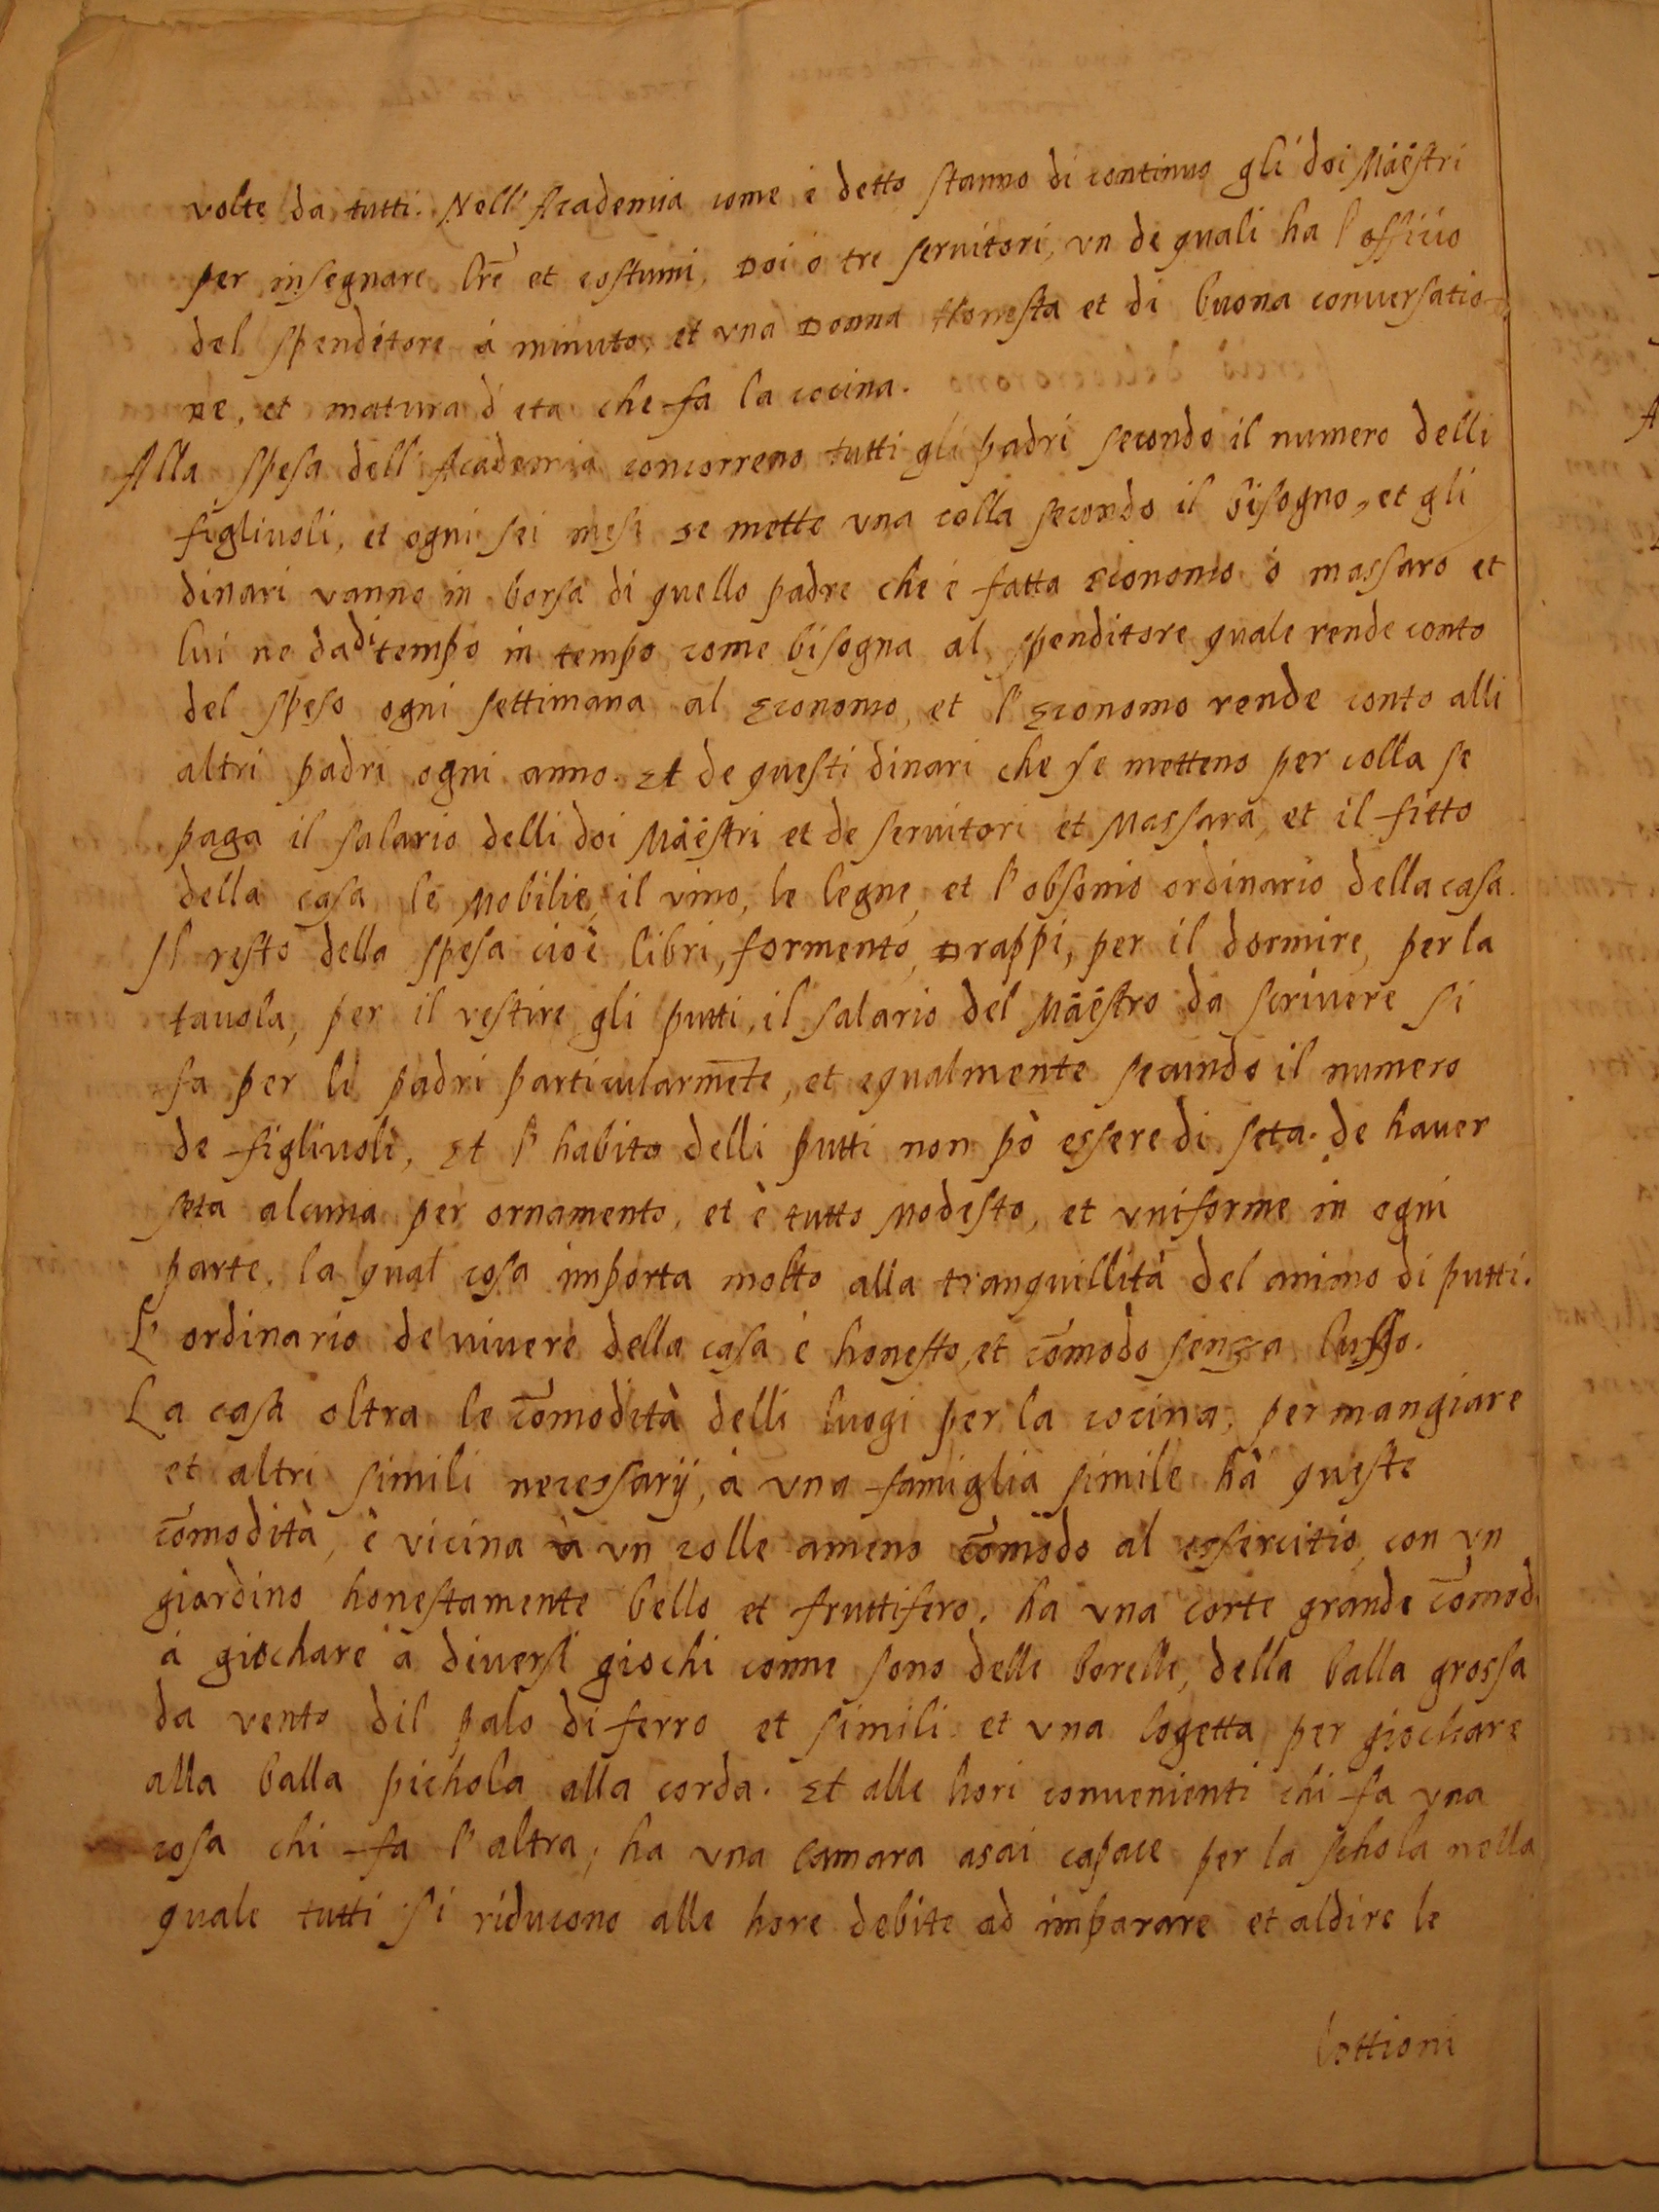 volte da tutti. Nell'Academia come è detto stanno di continuo gli doi Maestri
per insegnare lrē et costumi, Doi o tre seruitori, vn de quali ha l'officio
del spenditore à minuto, et vna Donna Honesta et di buona conuersatio-
ne, et matura d'eta che fa la cocina.
Alla spesa dell'Academia concorreno tutti gli padri secondo il numero delli
figliuoli, et ogni sei mesi se mette vna colla secondo il bisogno, et gli
dinari vanno in borsa di quello padre che è fatto Economo ò massaro et
lui ne da di tempo in tempo come bisogna al spenditore quale rende conto
del speso ogni settimana al Economo, et l'Economo rende conto alli
altri padri ogni anno. Et de questi dinari che se metteno per colla se
paga il salario delli doi Maëstri et de seruitori et Massara, et il fitto
della casa le Mobilie, il vino, le legne, et l'obsonio ordinario della casa.
Il resto della spesa cioè libri, formento, Drappi, per il dormire, per la
tauola, per il vestire gli putti, il salario del Maëstro da scriuere si
fa per li padri particularmēte, et egualmente secundo il numero
de figliuoli, Et l'habito delli putti non pò essere di seta. de hauer
seta alcuna per ornamento, et è tutto Modesto, et vniforme in ogni
parte, la qual cosa importa molto alla tranquillità del animo di putti.
L'ordinario de viuere della casa è honesto, et cōmodo senza lusso.
La casa oltra le cōmodità delli luogi per la cocina, per mangiare
et altri simili necessarij, à vna famiglia simile hà queste
cōmodità, è vicina à vn colle ameno cōmodo al essercitio, con vn
giardino honestamente bello et fruttifero. ha vna corte grande cōmoda
à giochare à diuersi giochi come sono delle borelle, della balla grossa
da vento dil palo di ferro et simili et vna logetta per giochare
alla balla pichola alla corda. Et alle hori conuenienti chi fa vna
cosa chi fa l'altra, ha vna camara asai capace per la schola nella
quale tutti si riducono alle hore debite ad imparare et aldire le
lottioni